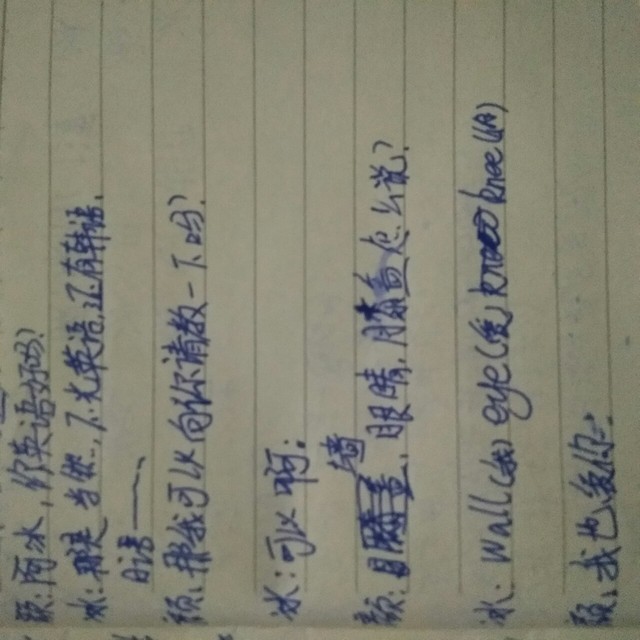 颜:阿水,你英语好吗?
水:那是当然,不光英语,还有韩语,
日语——
颜:那我可以向你请教一下吗?
水:可以啊:
颜:墙,眼睛,膝盖怎么说?
水:wall(我) eye(爱) knee(你)
颜:我也爱你.